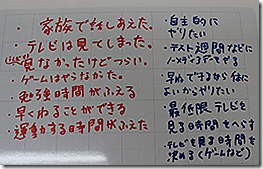 ・家族で話しあえた。
・テレビは見てしまった。
・見なかったけどつらい。
・ゲームはやらなかった。
・勉強時間がふえる
・早くねることができる
・運動する時間がふえた
・自主的に
やりたい
・テスト週間などに
ノーメディアデーやる
・早ねできるなら体に
よいからやりたい
・最低限テレビを
見る時間をへらす
・テレビを見る時間を
決める(ゲームなど)